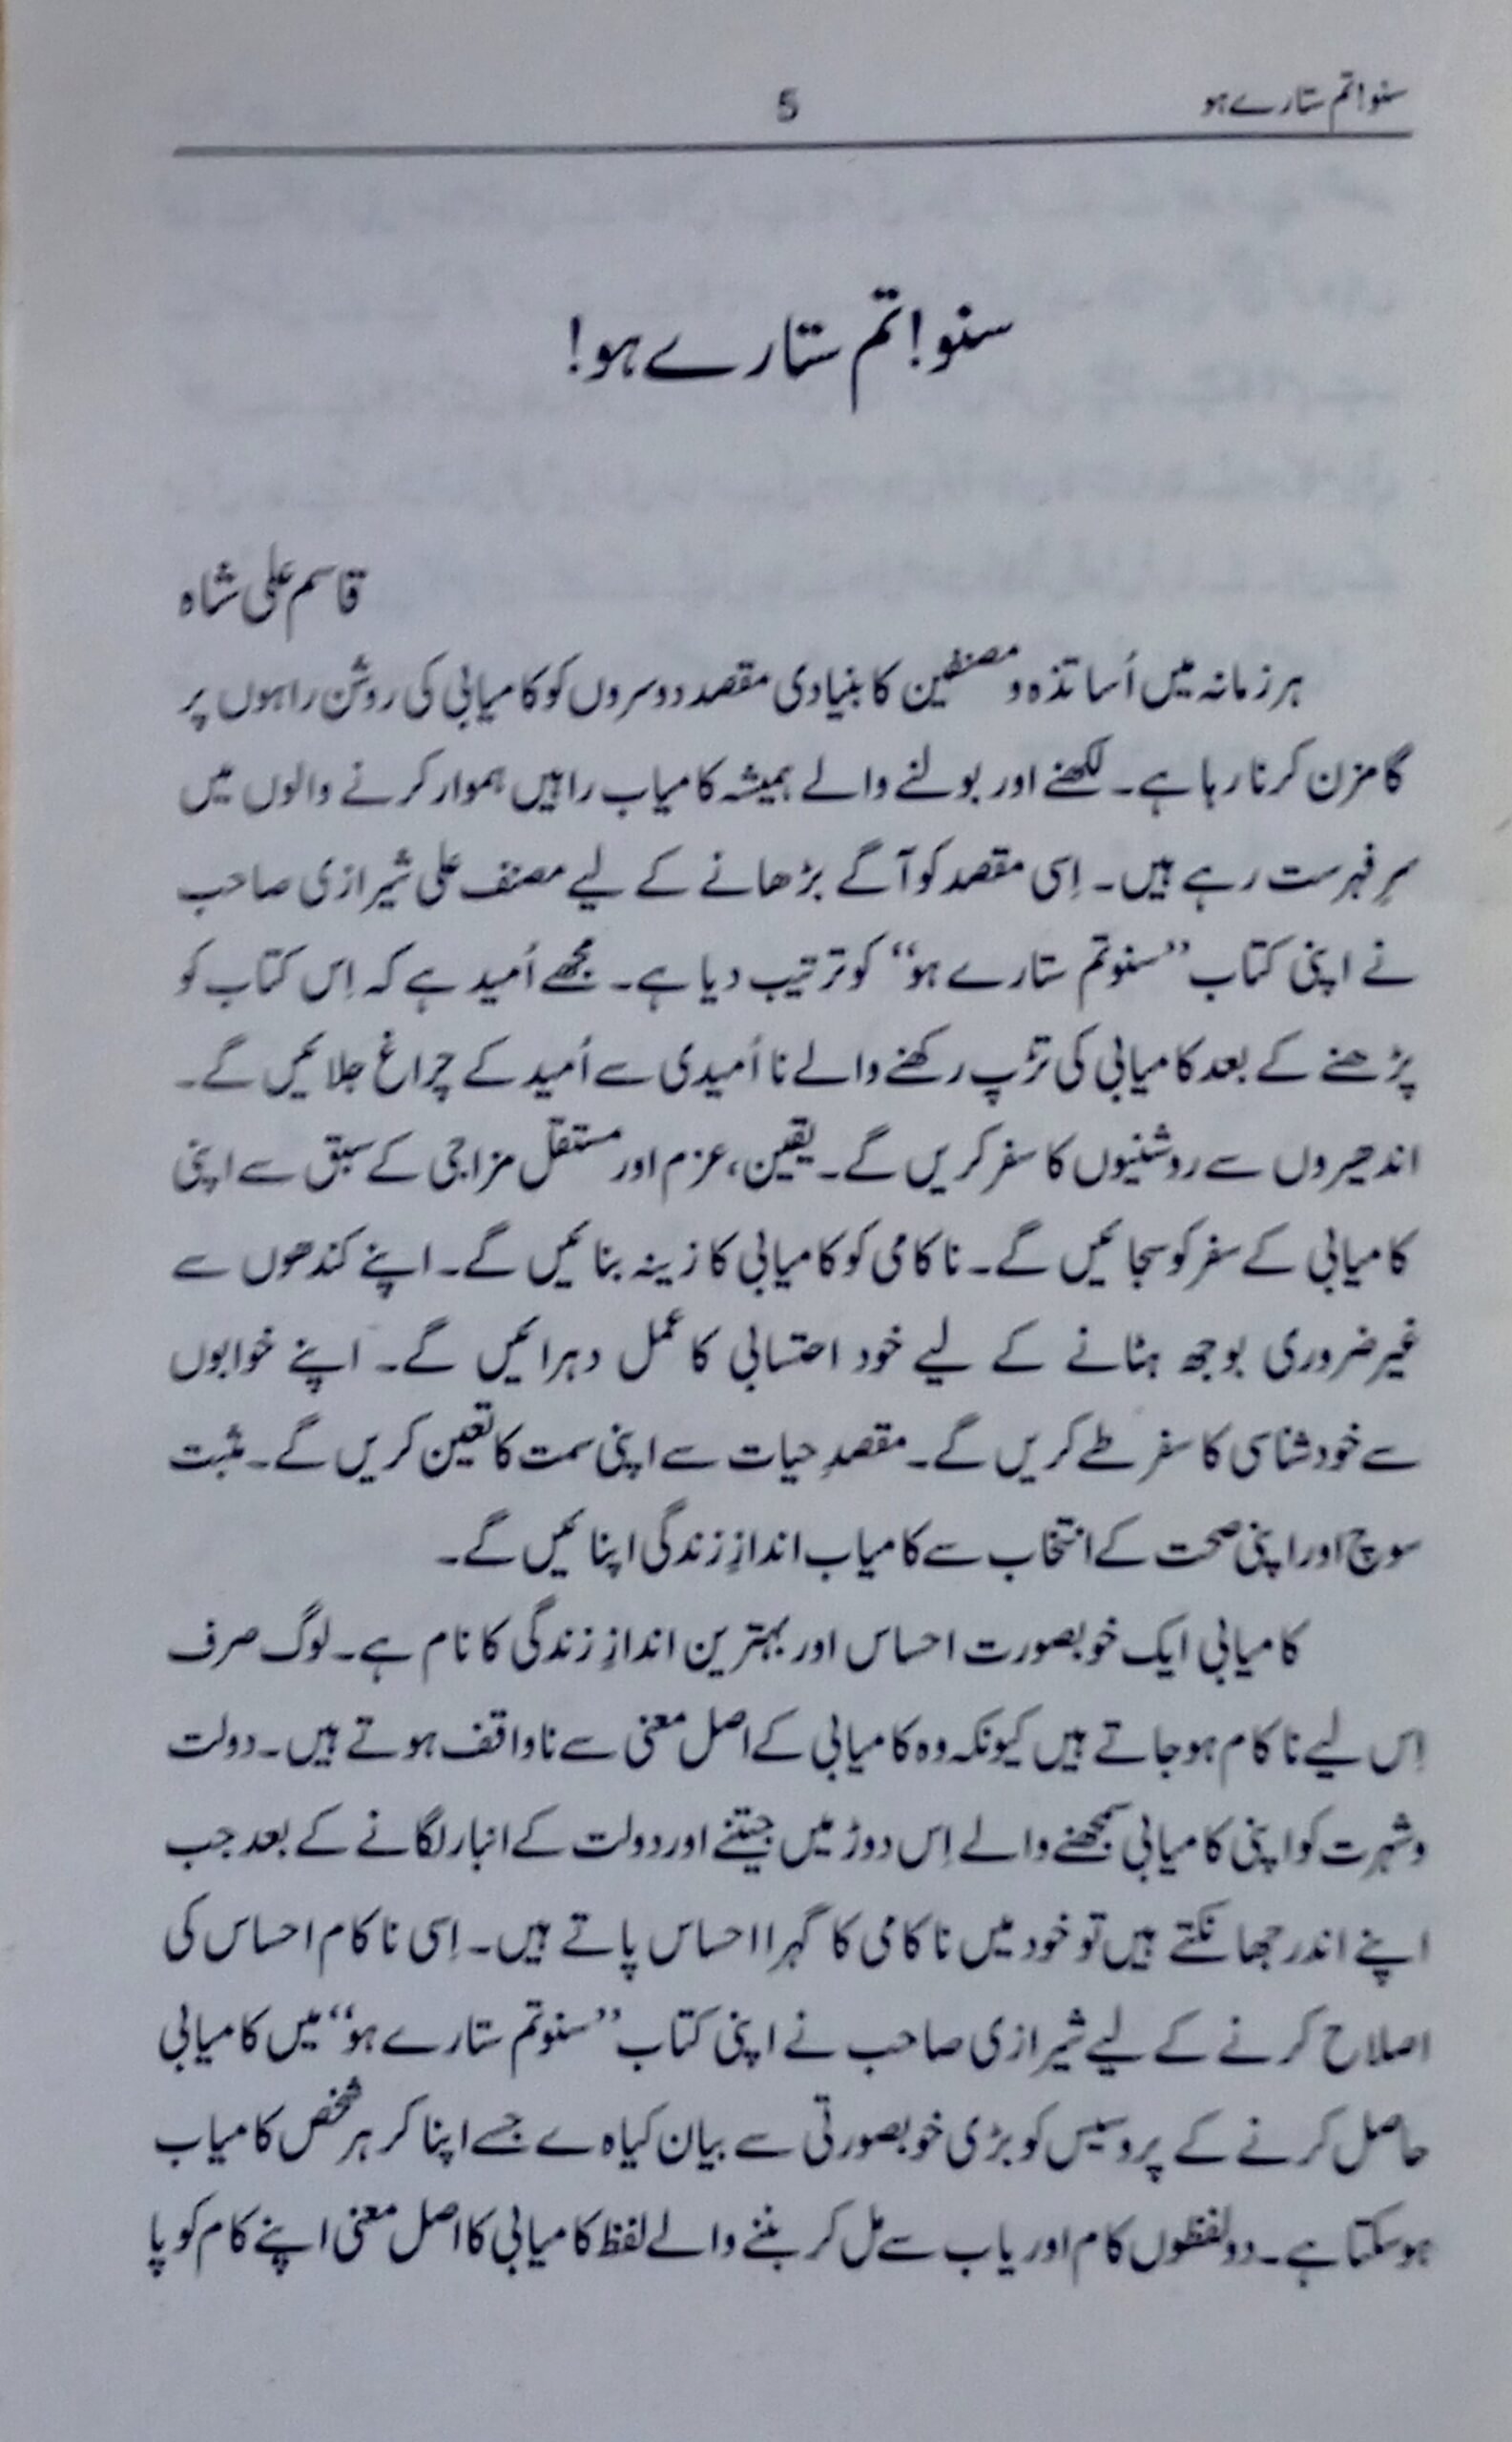 سنو! تم ستارے ہو
5
سنو! تم ستارے ہو!
قاسم علی شاہ
ہر زمانہ میں اُساتذہ و مصنفین کا بنیادی مقصد دوسروں کو کامیابی کی روشن راہوں پر
گامزن کرنا رہا ہے۔ لکھنے اور بولنے والے ہمیشہ کامیاب راہیں ہموار کرنے والوں میں
سرِ فہرست رہے ہیں۔ اِسی مقصد کو آگے بڑھانے کے لیے مصنف علی شیرازی صاحب
نے اپنی کتاب ’’سنو تم ستارے ہو‘‘ کو ترتیب دیا ہے۔ مجھے اُمید ہے کہ اِس کتاب کو
پڑھنے کے بعد کامیابی کی تڑپ رکھنے والے نا اُمیدی سے اُمید کے چراغ جلائیں گے۔
اندھیروں سے روشنیوں کا سفر کریں گے۔ یقین، عزم اور مستقل مزاجی کے سبق سے اپنی
کامیابی کے سفر کو سجائیں گے۔ ناکامی کو کامیابی کا زینہ بنائیں گے۔ اپنے کندھوں سے
غیر ضروری بوجھ ہٹانے کے لیے خود احتسابی کا عمل دہرائیں گے۔ اپنے خوابوں
سے خود شناسی کا سفر طے کریں گے۔ مقصدِ حیات سے اپنی سمت کا تعین کریں گے۔ مثبت
سوچ اور اپنی صحت کے انتخاب سے کامیاب اندازِ زندگی اپنائیں گے۔
کامیابی ایک خوبصورت احساس اور بہترین اندازِ زندگی کا نام ہے۔ لوگ صرف
اِس لیے ناکام ہو جاتے ہیں کیونکہ وہ کامیابی کے اصل معنی سے ناواقف ہوتے ہیں۔ دولت
و شہرت کو اپنی کامیابی سمجھنے والے اِس دوڑ میں جیتنے اور دولت کے انبار لگانے کے بعد جب
اپنے اندر جھانکتے ہیں تو خود میں ناکامی کا گہرا احساس پاتے ہیں۔ اِسی ناکام احساس کی
اصلاح کرنے کے لیے شیرازی صاحب نے اپنی کتاب ’’سنو تم ستارے ہو‘‘ میں کامیابی
حاصل کرنے کے پروسیس کو بڑی خوبصورتی سے بیان کیاہ ے جسے اپنا کر ہر شخص کامیاب
ہو سکتا ہے۔ دو لفظوں کام اور یاب سے مل کر بننے والے لفظ کامیابی کا اصل معنی اپنے کام کو پا